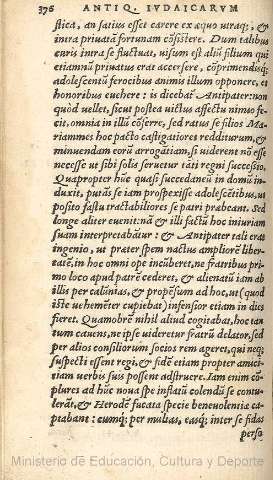 376 ANTIQ. IVDAICARVM
stica, an satius esset carere ex æquo utraq;, &
intra priuatā fortunam cōsistere. Dum talibus
curis intra se fluctuat, uisum est aliū filium qui
etiamnū priuatus erat accersere, cōprimendisq;
adolescentū ferocibus animis illum opponere, et
honoribus euehere: is dicebat̃ Antipater: non
quòd uellet, sicut postea uictus affectu nimio fe-
cit, omnia in illū cōferre, sed ratus se filios Ma-
riammes hoc pacto castigatiores redditurum, et
minuendam eorū arrogatiam, si uiderent nō esse
necesse ut sibi solis seruetur tati regni successio.
Quapropter hūc quasi succedaneū in domū in-
duxit, putās se iam prospexisse adolescētibus, ut
posito fastu tractabiliores se patri præbeant. Sed
longe aliter euenit: nā & illi factū hoc iniuriam
suam interpretabātur: & Antipater tali erat
ingenio, ut præter spem nactus ampliorē liber-
tatē, in hoc omni ope incūberet, ne fratribus pri-
mo loco apud patrē cederet, & alienatū iam ab
illis per calūnias, & propēsum ad hoc, ut (quod
iste uehemēter cupiebat) infensior etiam in dies
fieret. Quamobrē nihil aliud cogitabat, hoc tan
tum cauens, ne ipse uideretur fratrū delator, sed
per alios consiliorum socios rem ageret, qui neq;
suspecti essent regi, & fidē etiam propter amici-
tiam uerbis suis possent adstruere. Iam enim cō-
plures ad hūc noua spe inflatū colendū se contu-
lerāt, & Herodē fucata specie beneuolentiæ ca-
ptabant: cumq; per multas, easq; inter se fidas
perso
Ministerio de Educación, Cultura y Deporte